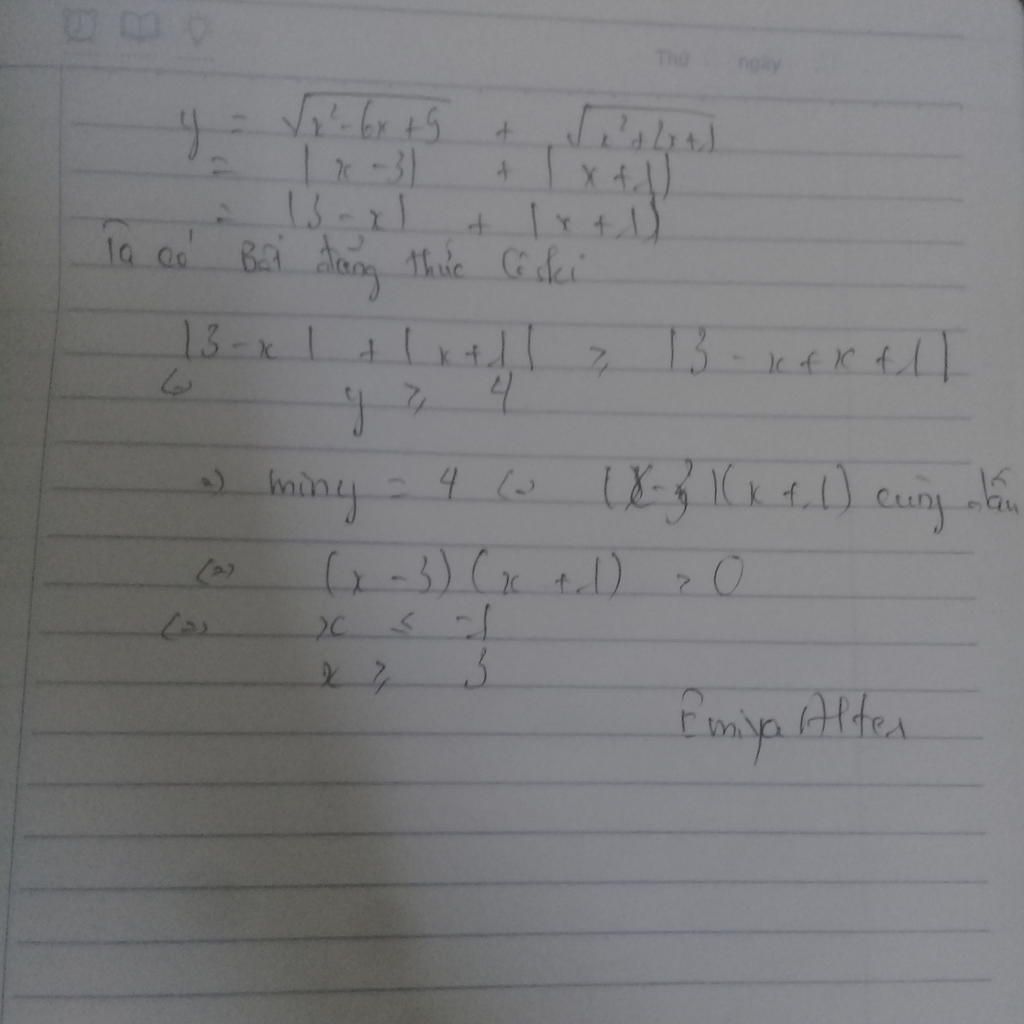 Thứ ngày
y = √x²-6x+9 + √x²+2x+1
= |x-3| + |x+1|
= |3-x| + |x+1|
Ta có Bất đẳng thức Côski
|3-x| + |x+1| ≥ |3-x+x+1|
(=) y ≥ 4
=) miny = 4 (=) (x-3)(x+1) cùng dấu
(=) (x-3)(x+1) > 0
(=) x ≤ -1
x ≥ 3
Emiya Alter